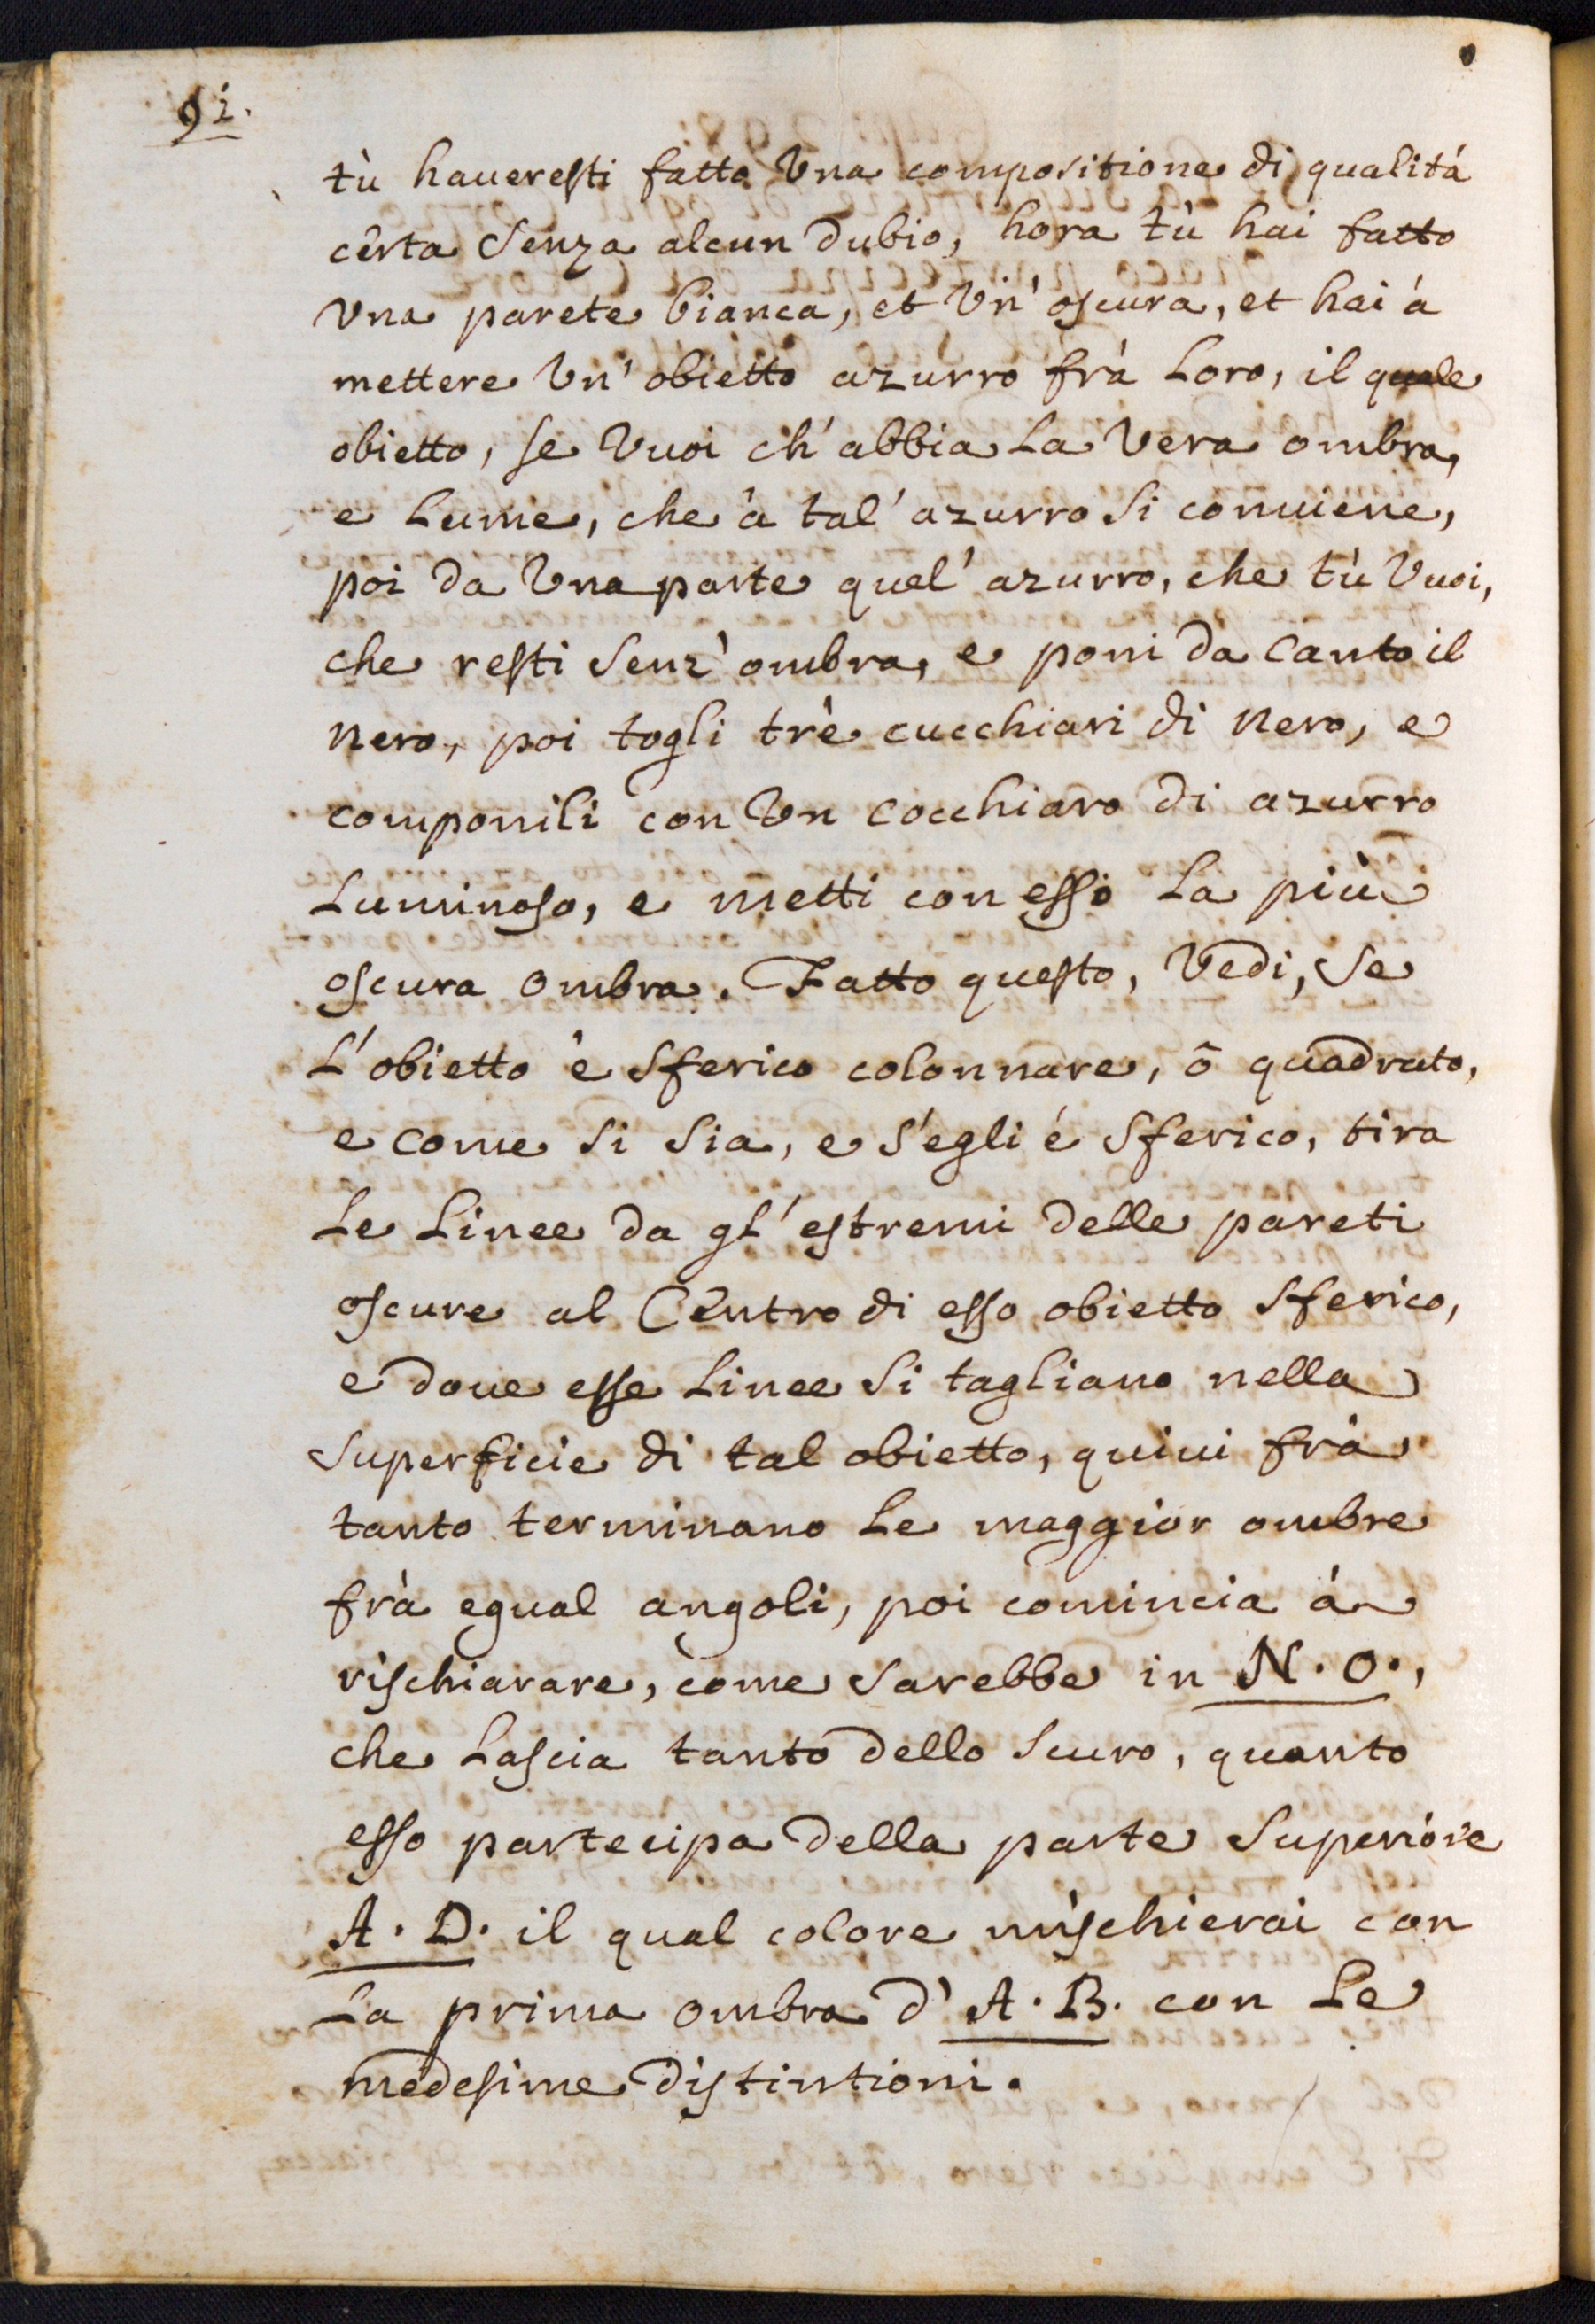 91.
tù haueresti fatto Vna compositione di qualitá
cêrta Senza alcun dubio, hora tù hai fatto
Vna parete bianca, et Vn' oscura, et hai á
mettere Vn' obietto azurro frà Loro, il quale
obietto, se Vuoi ch' abbia La Vera ombra,
e Lume, che à tal' azurro Si conuiene,
poi da Vna parte quel' azurro, che tù Vuoi,
che resti Senz' ombra, e poni da Canto il
Nero, poi togli trè cucchiari di Nero, e
componili con Vn Cocchiaro di azurro
Luminoso, e metti con esso La più
oscura Ombra. Fatto questo, Vedi, Se
L'obietto è Sferico colonnare, ò quadrato,
e Come Si Sia, e S'egli é Sferico, tira
Le Linee da gl' estremi delle pareti
oscure al Centro di esso obietto Sferico,
e doue esse Linee Si tagliano nella
Superficie di tal obietto, quiui frà
tanto terminano Le maggior ombre
frà egual angoli, poi comincia á
rischiarare, come Sarebbe in N. O.,
che Lascia tanto dello Scuro, quanto
esso partecipa della parte Superióre
A. D. il qual colore mischierai con
La prima Ombra d' A. B. con Le
medesime distintioni.